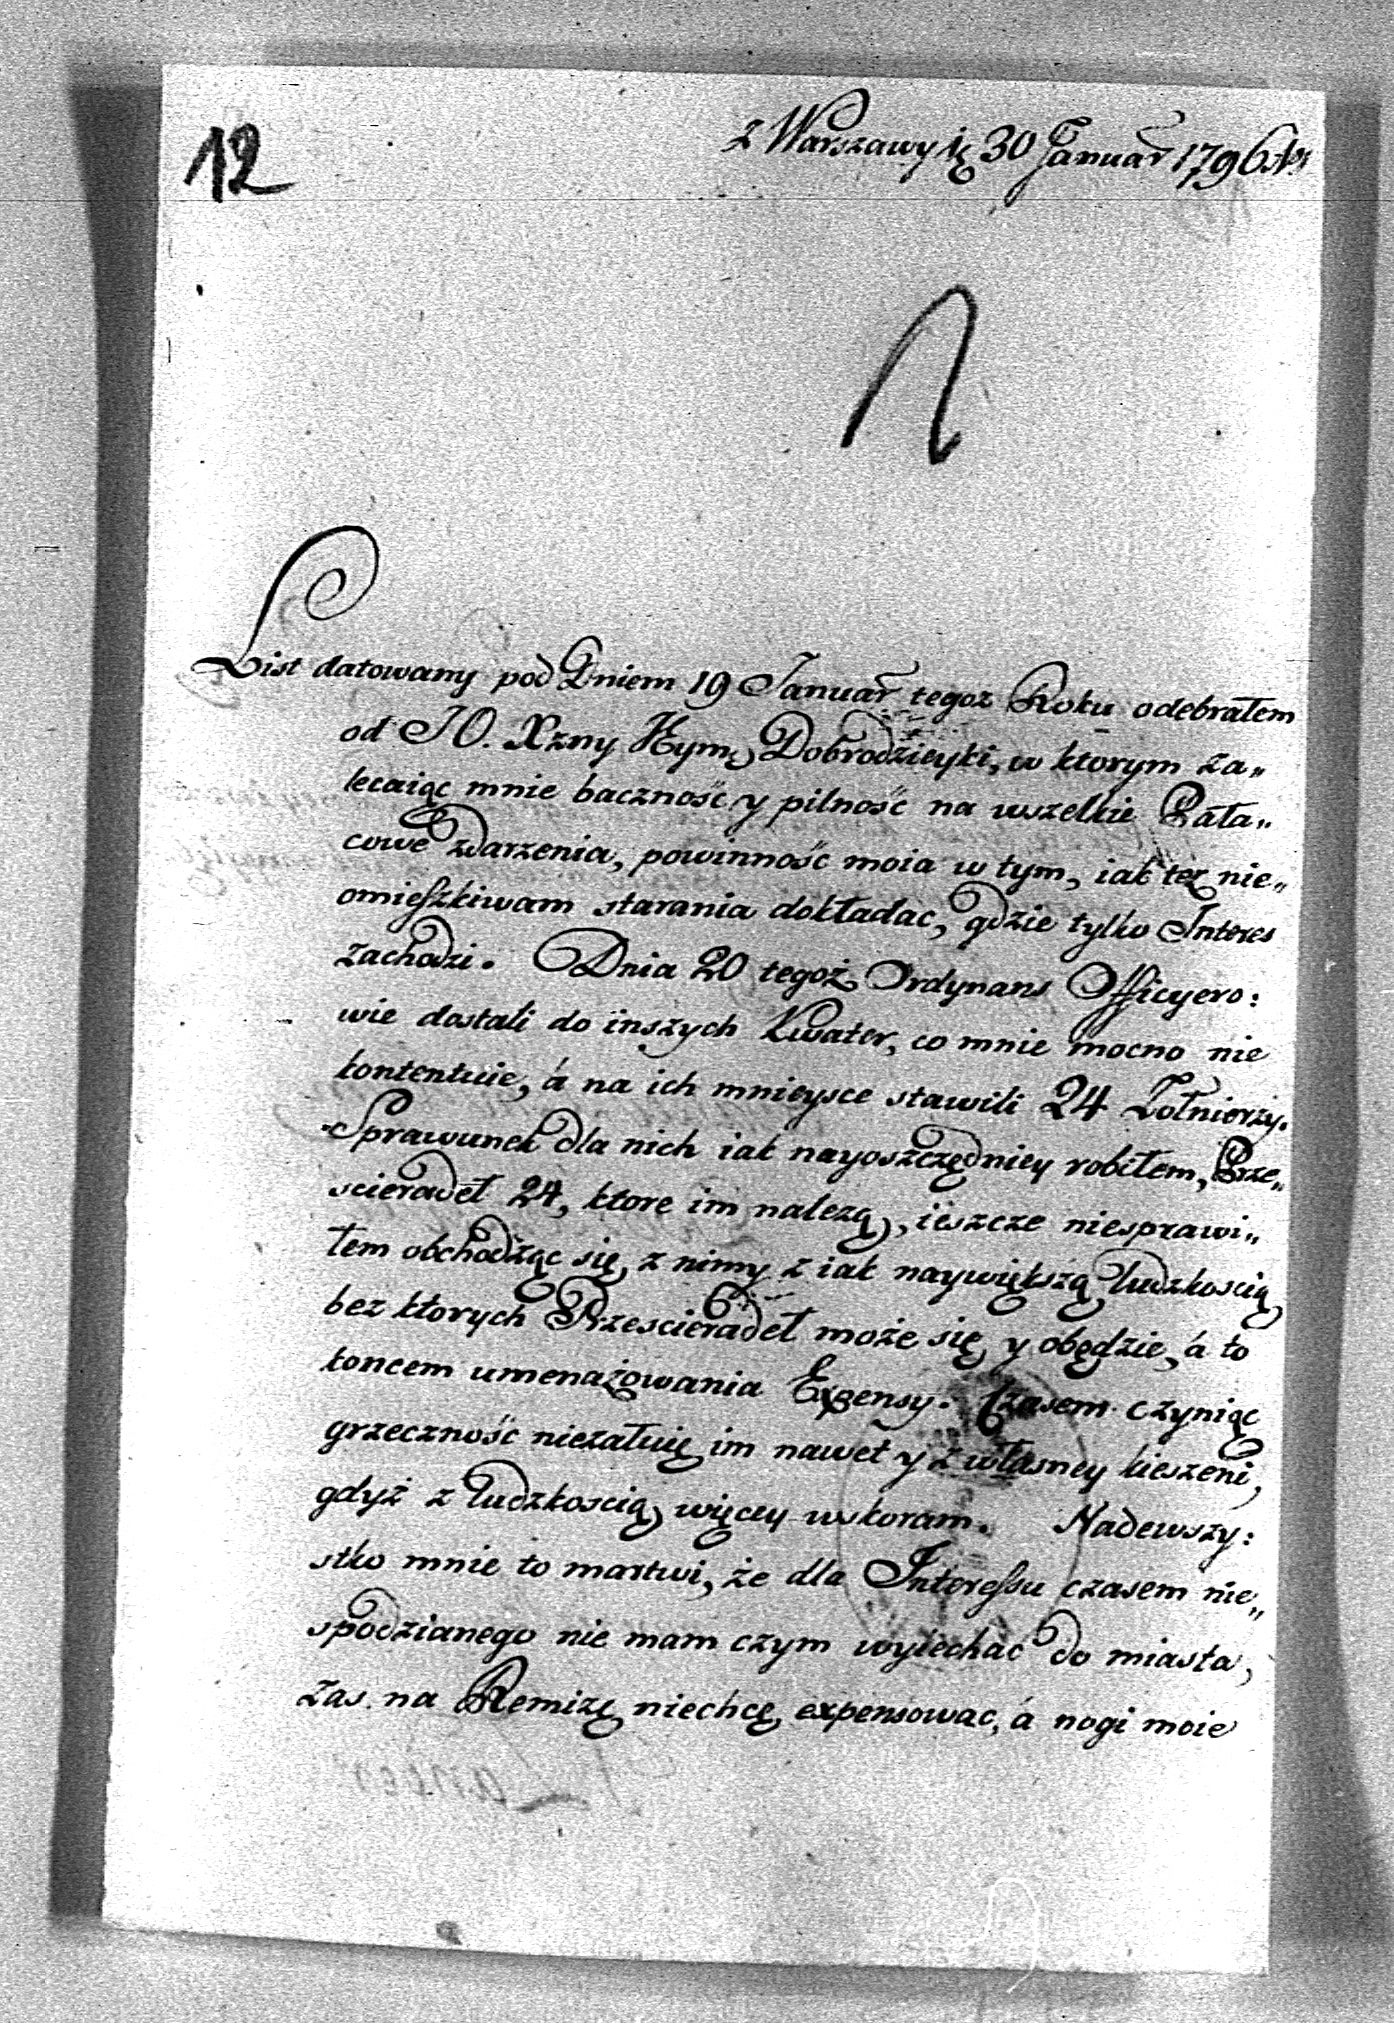 12
z Warszawy d. 30 Januar 1796
List datowany pod Dniem 19 Januar tegoz Roku odebrałem
od JO. Xzny Jeym Dobrodzieyki, w ktorym za„
lecaiąc mnie baczność y pilność na wszelkie Pała„
cowe zdarzenia, powinność moia w tym, iak też nie„
omieszkiwam starania dokładac, gdzie tylko Interes
zachodzi. Dnia 20 tegoż Ordynans Officyero:
wie dostali do inszych Kwater, co mnie mocno nie
kontentuie, á na ich mnieysce stawili 24 Żołnierży.
Sprawunek dla nich iak nayoszczędniey robiłem, Prze„
scieradeł 24, ktore im nalezą, ieszcze niesprawi„
łem obchodząc się z nimy z iak naywiększą ludzkoscią
bez ktorych Przescieradeł może się y obędzie, á to
koncem umenażowania Expensy. Czasem czyniąc
grzeczność niezałuię im nawet y z własney kieszeni,
gdyż z ludzkoscią więcey wskoram. Nadewszy:
stko mnie to martwi, że dla Interessu czasem nie„
spodzianego nie mam czym wyiechac do miasta,
zas na Remizę niechcę expensowac, á nogi moie